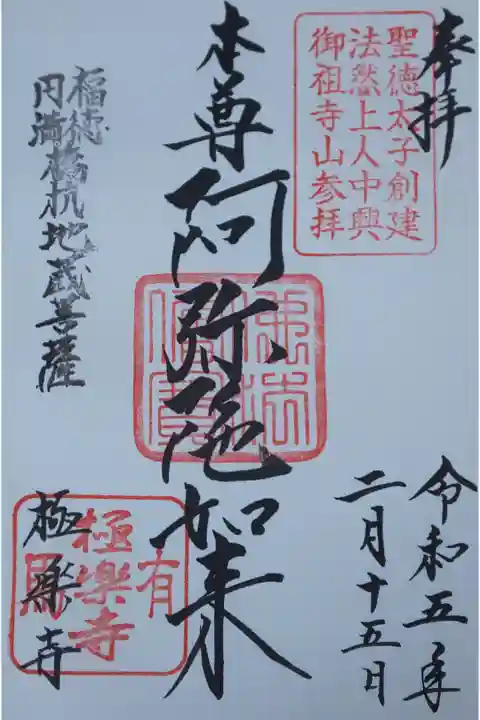 奉拝
聖徳太子創建
法然上人中興
御祖寺山参拝
令和五年
二月十五日
本尊阿弥陀如来
佛法僧寳
福徳
円満橋杭地蔵菩薩
極楽寺
有馬
極樂寺